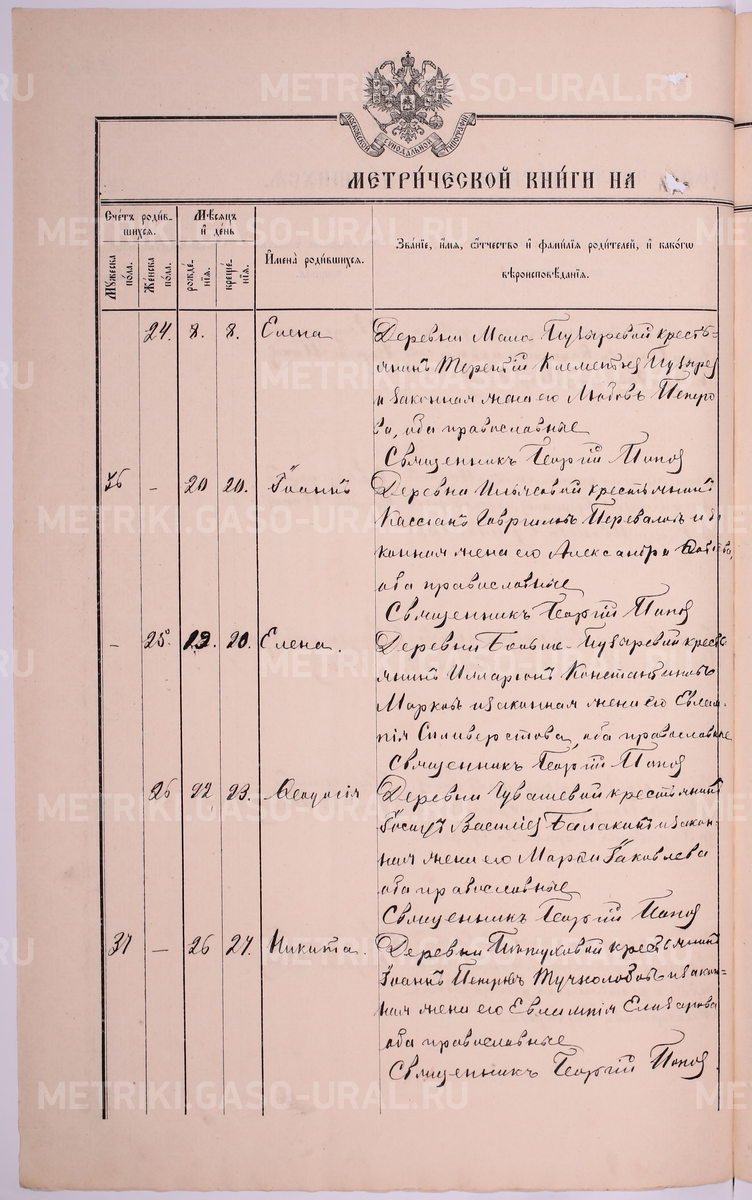 METRIKI.GASO-URAL.RU
МОСКОВСКОЙ СИНОДАЛЬНОЙ ТИПОГРАФІИ
МЕТРИ́ЧЕСКОЙ КНИ́ГИ НА
Сче́тъ роди́в-
шихся.
Мѣ́сяцъ
и де́нь
Му́жеска
по́ла.
Же́нска
по́ла.
рожде́-
нія.
креще́-
нія.
Имена̀ роди́вшихся.
Зва́ніе, и́мя, о́тчество и фами́лія роди́телей, и како́гѡ
вѣроисповѣ́данія.
24. 8. 8. Елена
Деревни Мало-Пузыревой кресть-
янинъ Терентій Клементьев Пузырев
и законная жена его Любовь Петро
ва, оба православные
Священникъ Георгій Попов
36 – 20 20. Іоаннъ
Деревни Ильясовой крестьянинъ
Кассіанъ Гавриловъ Перваловъ и за
конная жена его Александра
оба православные
Священникъ Георгій Попов
– 25 19. 20. Елена.
Деревни Больше-Пузыревой кресть-
янинъ Илларіонъ Константиновъ
Марковъ и законная жена его Евлам-
пія Силиверстова, оба православные
Священникъ Георгій Попов
26 22 23. Ѳеодосія
Деревни Чувашевой крестьянинъ
Іосифъ Васильев Балакинъ и закон-
ная жена его Марѳа Іаковлева
оба православные
Священникъ Георгій Попов
37 – 26 27. Никита.
Деревни крестьянинъ
Іоаннъ Петровъ и закон-
ная жена его Евлампія Елизарова
оба православные
Священникъ Георгій Попов